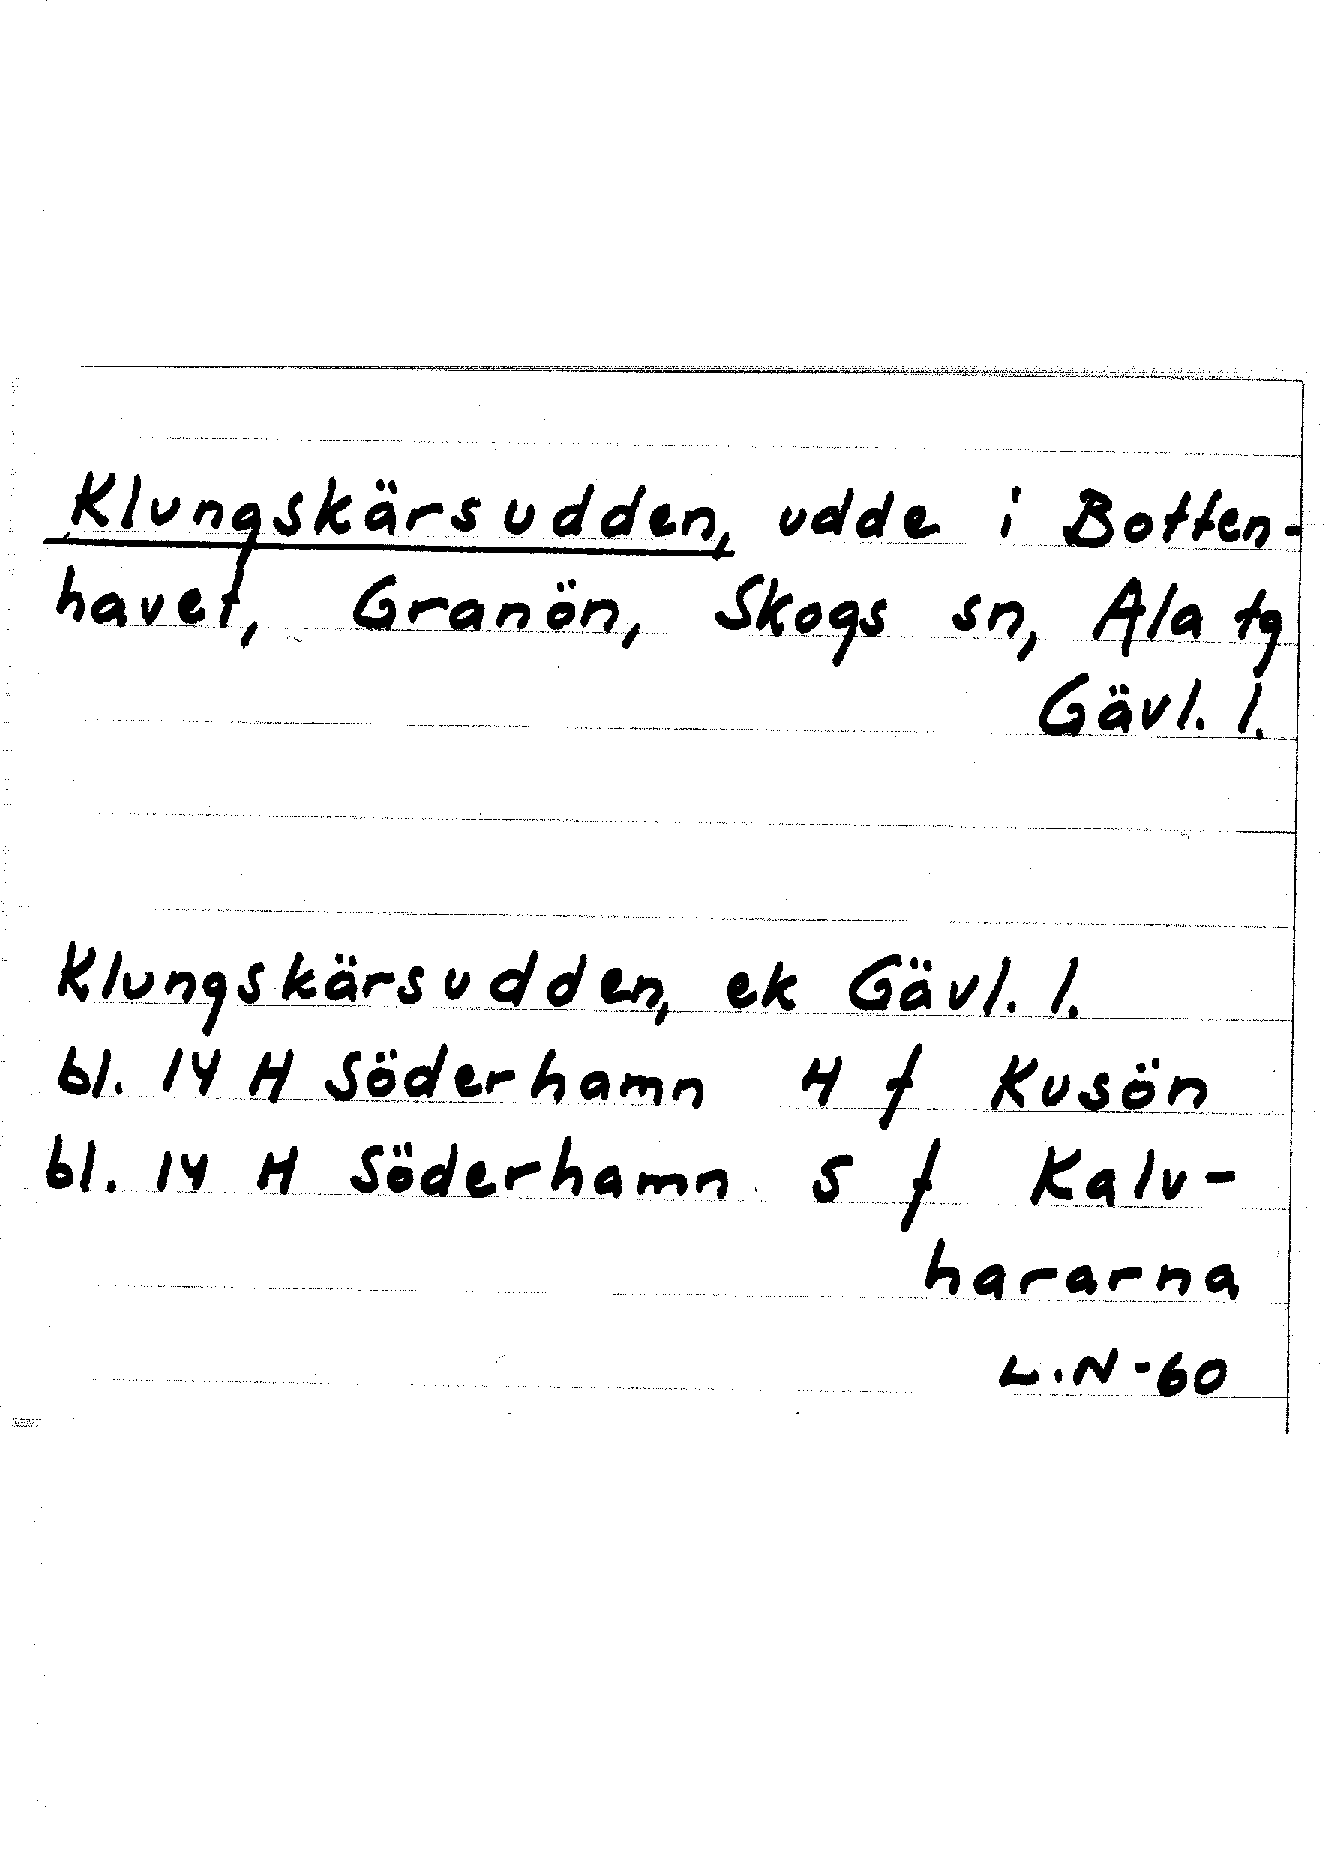 Klungskärsudden, udde i Botten-
havet, Granön, Skogs sn, Ala tg
Gävl. l.
Klungskärsudden, ek Gävl. l.
bl. 14 H Söderhamn 4 f Kusön
bl. 14 H Söderhamn 5 f Kalv-
hararna
L.N-60